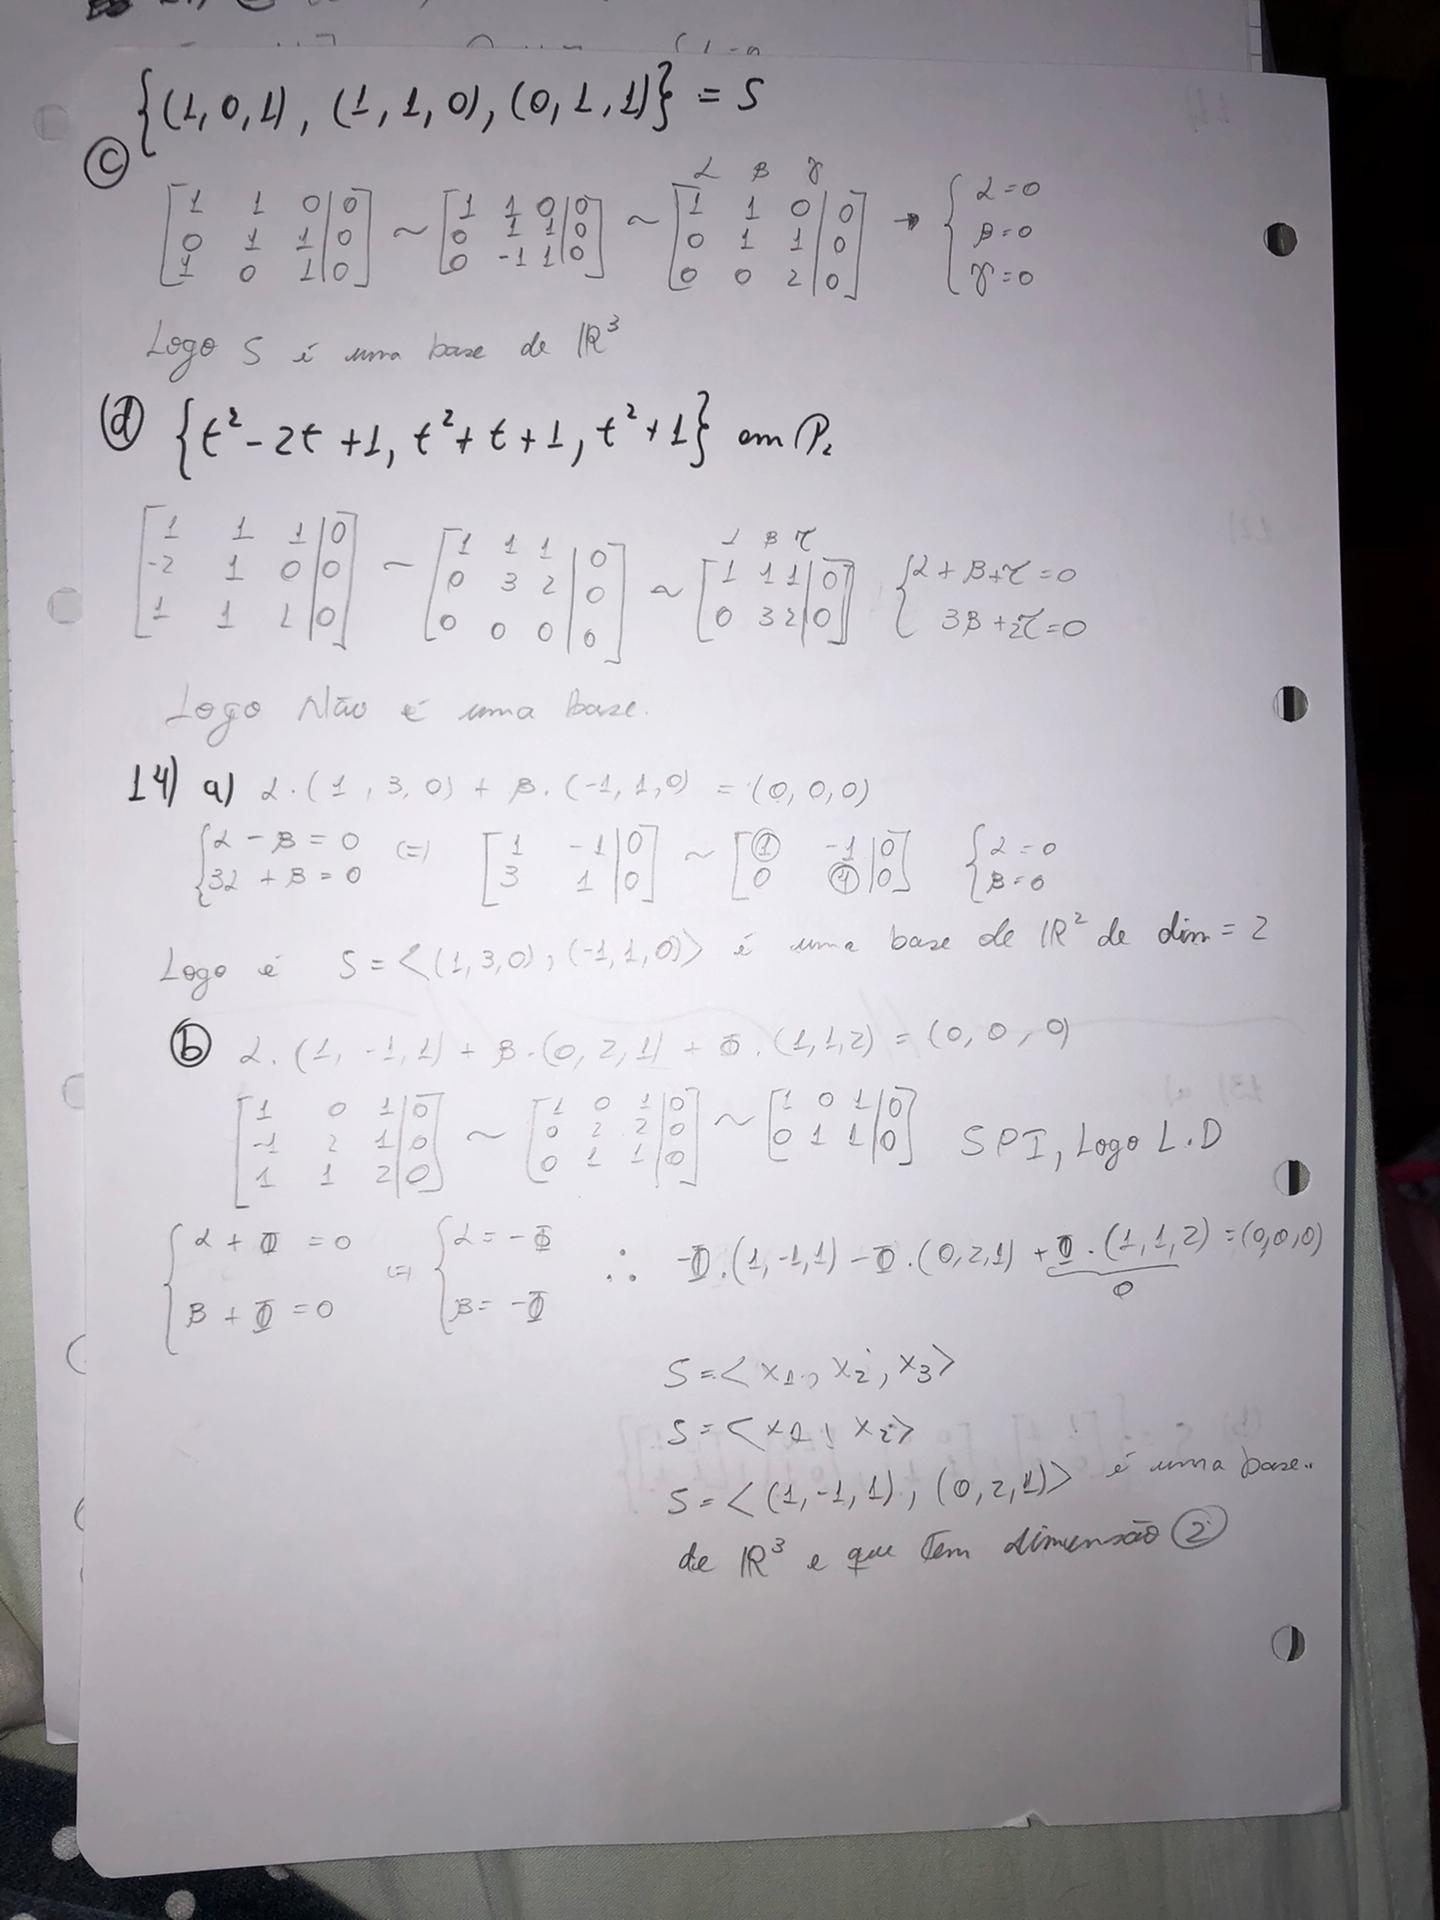 {(1,0,1), (1,1,0), (0,1,1)} = S
(c)
[1 1 0|0; 0 1 1|0; 1 0 1|0] ~ [1 1 0|0; 0 1 1|0; 0 -1 1|0] ~ α β γ [1 1 0|0; 0 1 1|0; 0 0 2|0] → {α=0; β=0; γ=0
Logo S é uma base de ℝ³
(d) {t²-2t+1, t²+t+1, t²+1} em P₂
[1 1 1|0; -2 1 0|0; 1 1 2|0] ~ [1 1 1|0; 0 3 2|0; 0 0 0|0] ~ α β γ [1 1 1|0; 0 3 2|0] {α+β+γ=0; 3β+2γ=0
Logo Não é uma base.
14) a) α.(1,3,0) + β.(-1,1,0) = (0,0,0)
{α-β=0; 3α+β=0 (=) [1 -1|0; 3 1|0] ~ [1 -1|0; 0 4|0] {α=0; β=0
Logo é S=<(1,3,0), (-1,1,0)> é uma base de ℝ² de dim=2
(b) α.(1,-1,1) + β.(0,2,1) + Φ.(1,1,2) = (0,0,0)
[1 0 1|0; -1 2 1|0; 1 1 2|0] ~ [1 0 1|0; 0 2 2|0; 0 1 1|0] ~ [1 0 1|0; 0 1 1|0] SPI, Logo L.D
{α+Φ=0; β+Φ=0 (=) {α=-Φ; β=-Φ ∴ -Φ.(1,-1,1) -Φ.(0,2,1) +Φ.(1,1,2) = (0,0,0)
0
S=<x₁, x₂, x₃>
S=<x₁, x₂>
S=<(1,-1,1), (0,2,1)> é uma base..
de ℝ³ e que tem dimensão (2)